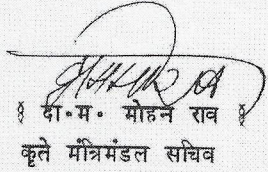 § दा·म· मोहन राव §
कृते मंत्रिमंडल सचिव